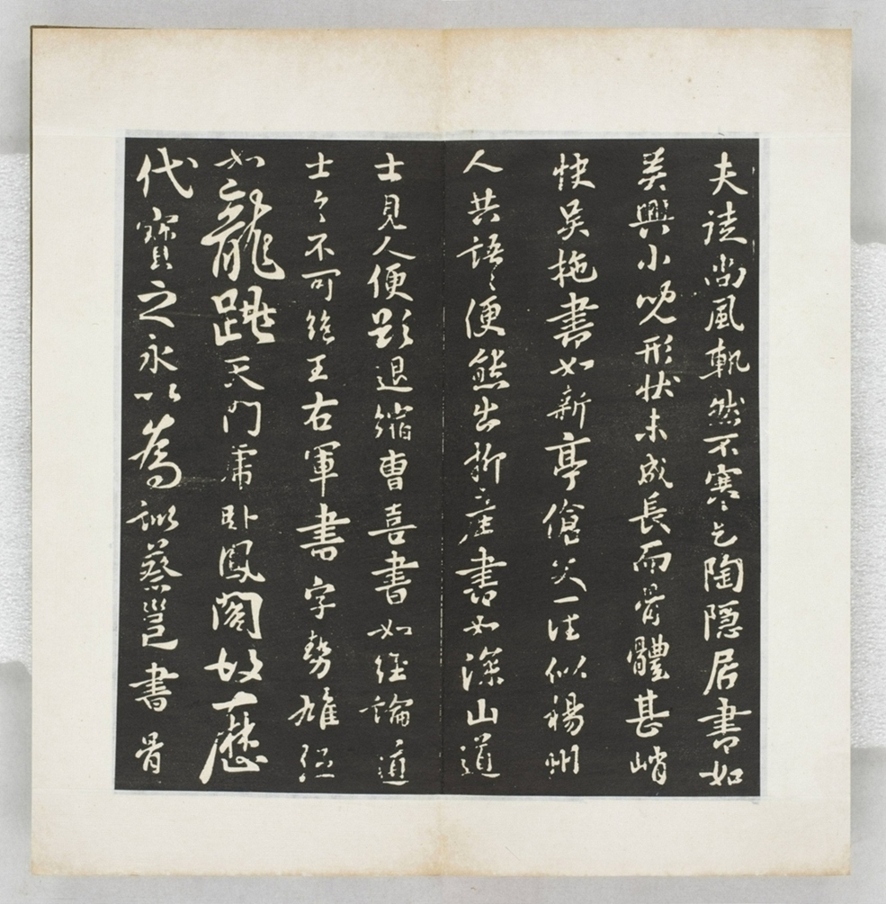 夫徒尚風軌然不寒乞陶隱居書如
吳興小兒形狀未成長而骨體甚峭
快吳施書如新亭傖父一往似楊州
人共語々便態出柳產書如深山道
士見人便欲退縮曹喜書如經論道
士言不可絕王右軍書字勢雄強
如龍跳天門虎臥鳳閣故歷
代寶之永以為訓蔡邕書骨